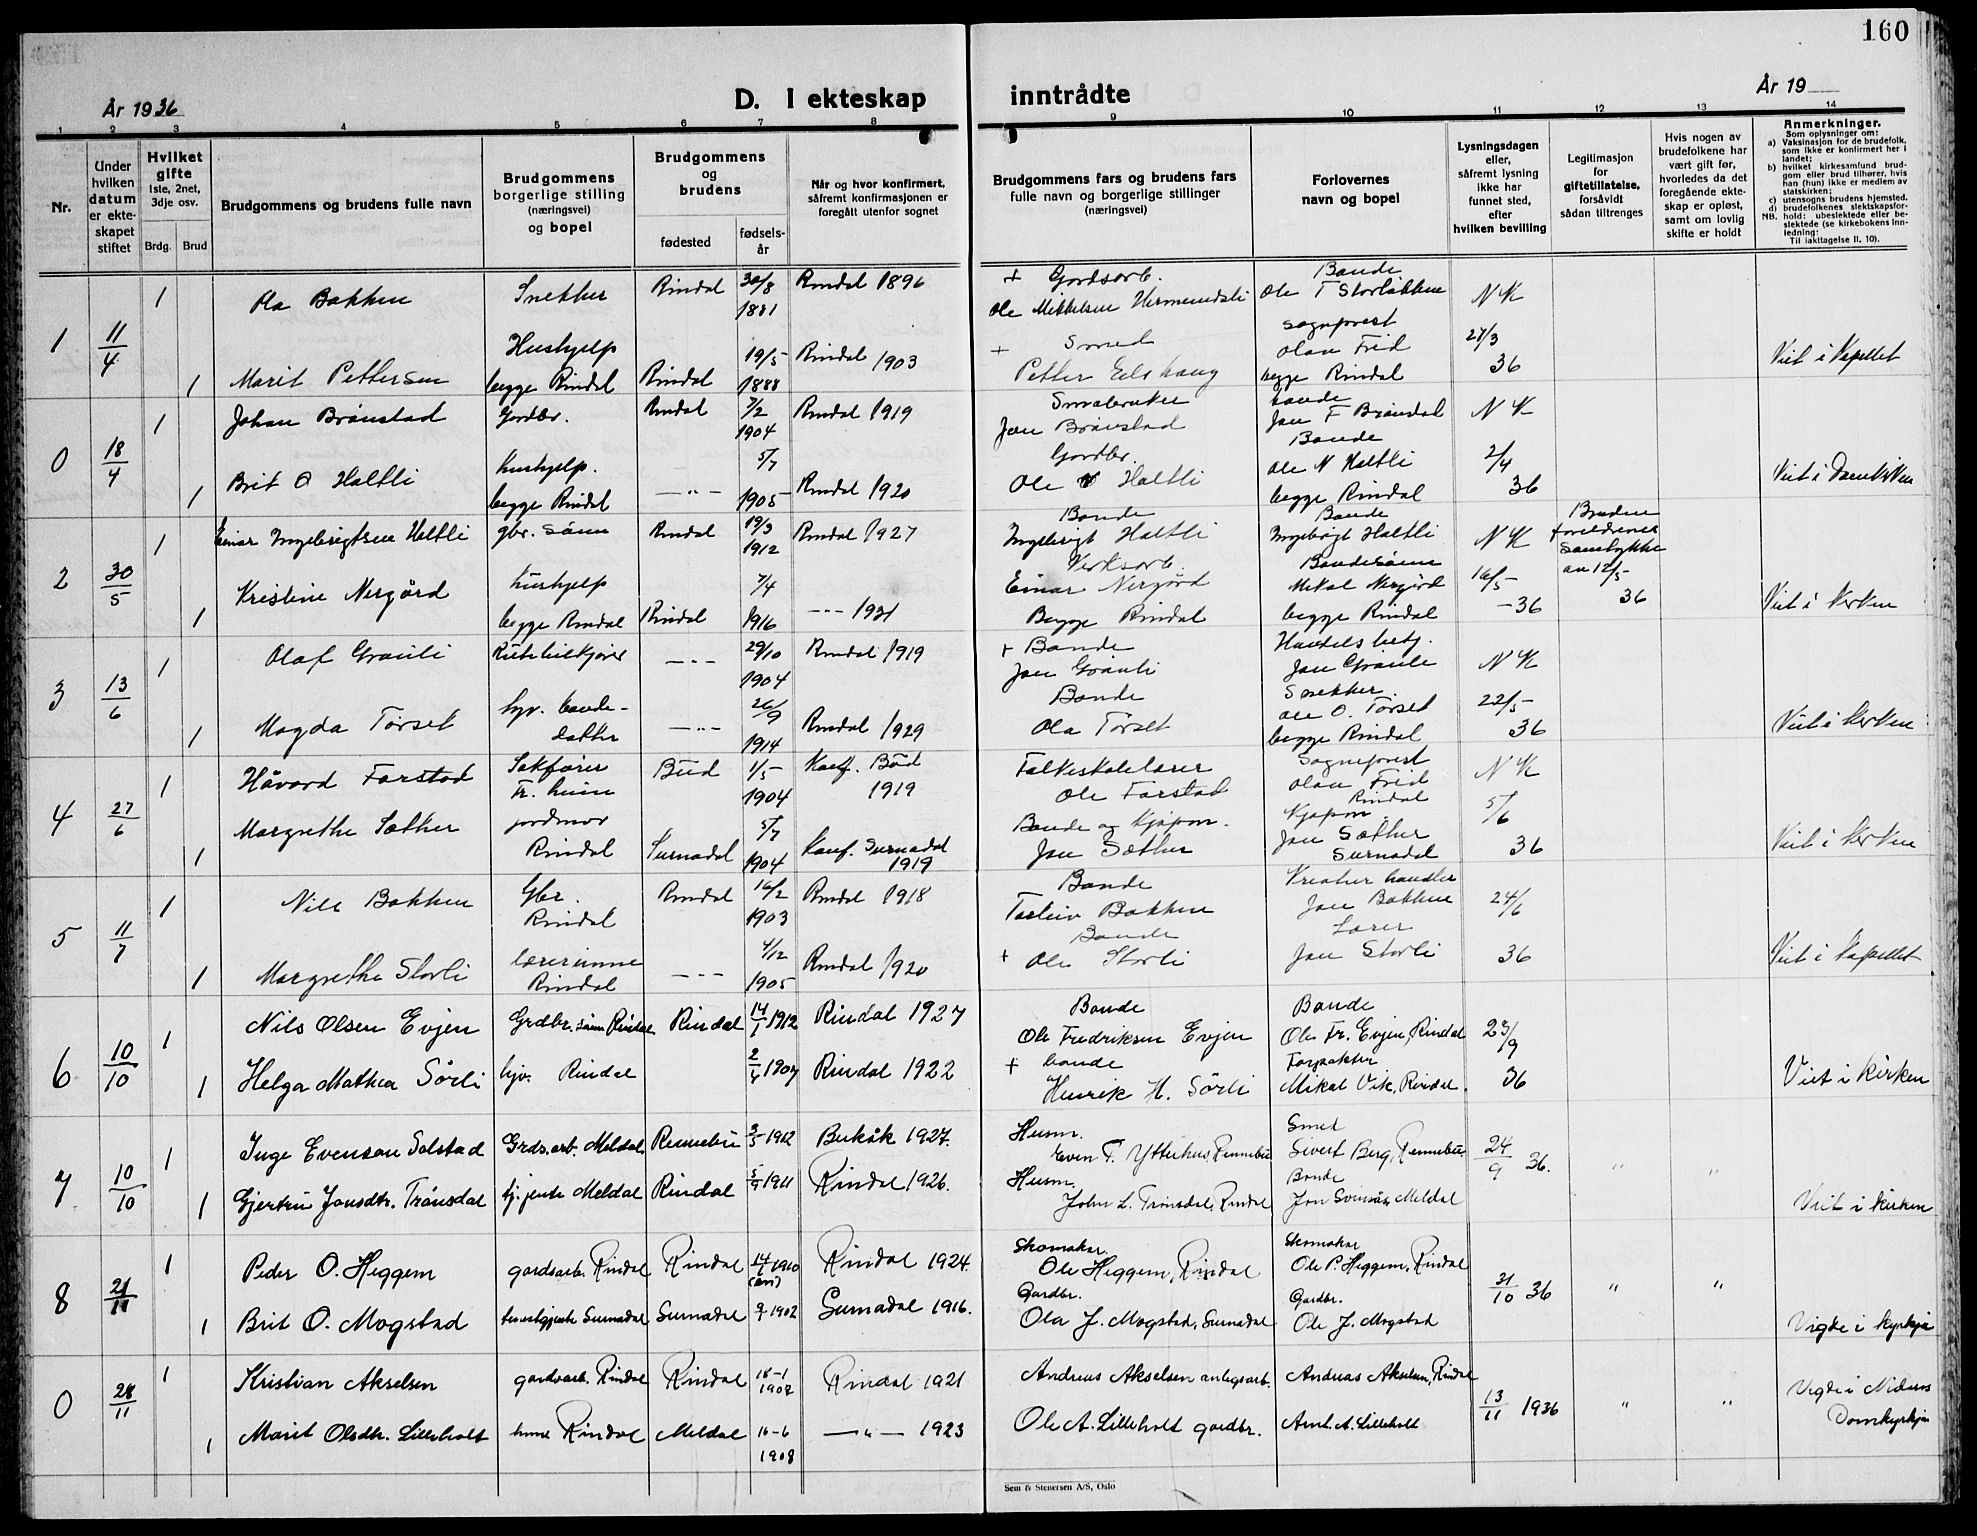 160
År 1936
D. I ekteskap
inntrådte
År 19
1 2 3 4 5 6 7 8 9 10 11 12 13 14
Nr.
Under hvilken datum er ekteskapet stiftet
Hvilket gifte 1ste, 2net, 3dje osv.
Brdg. Brud
Brudgommens og brudens fulle navn
Brudgommens borgerlige stilling (næringsvei) og bopel
Brudgommens og brudens
fødested
fødselsår
Når og hvor konfirmert, såfremt konfirmasjonen er foregått utenfor sognet
Brudgommens fars og brudens fars fulle navn og borgerlige stillinger (næringsvei)
Forlovernes navn og bopel
Lysningsdagen eller, såfremt lysning ikke har funnet sted, efter hvilken bevilling
Legitimasjon for giftetillatelse, forsåvidt sådan tiltrenges
Hvis nogen av brudefolkene har vært gift før, hvorledes da det foregående ekteskap er opløst, samt om lovlig skifte er holdt
Anmerkninger.
Som oplysninger om:
a) Vaksinasjon for de brudefolk, som ikke er konfirmert her i landet;
b) hvilket kirkesamfund brudgom eller brud tilhører, hvis han (hun) ikke er medlem av statskirken;
c) utensogns brudens hjemsted.
d) brudefolkenes slektskapsforhold: ubeslektede eller beslektede (se kirkebokens Innledning:
NB.
Til iakttagelse II. 10).
1 11/4 1 Ola Bakken Snekker Rindal 30/8 1881 Rindal 1896 + Gardsarb. Ole Mikkelsen Bonde Ole T Storløkken N K
1 Marit Pettersen Hushjelp begge Rindal Rindal 19/5 1888 Rindal 1903 + Smed Petter Sogneprest Olav Frid begge Rindal 27/3 36 Viet i Kapellet
0 18/4 1 Johan Brønstad Gardbr. Rindal 7/2 1904 Rindal 1919 Småbruker Jon Brønstad Bonde Jon F Brøndal N K
1 Brit O Haltli hushjelp. begge Rindal —"— 5/7 1905 Rindal 1920 Gardbr. Ole Haltli Bonde Ole N Haltli begge Rindal 2/4 36
2 30/5 1 Einar Ingebrigtsen Haltli gbr. sønn Rindal 19/3 1912 Rindal 1927 Bonde Ingebrigt Haltli Bonde Ingebrigt Haltli N K Brudens foreldrenes samtykke av 12/5 36
1 Kristine Nergård hushjelp begge Rindal Rindal 7/4 1916 —"— 1931 Verksarb. Einar Nergård Begge Rindal Bondesønn Mikal Nergård begge Rindal 16/5 -36 Viet i Kirken
3 13/6 1 Olaf Grønli Rutebilkjører —"— 29/10 1904 Rindal 1919 + Bonde Jon Grønli Handelsbetj. Jon Grønli N K
1 Magda Tørset hjv. bondedatter —"— 26/9 1914 Rindal 1929 Bonde Ola Tørset Snekker Ole O. Tørset begge Rindal 22/5 36 Viet i Kirken
4 27/6 1 Håvard Farstad Sakfører Bud 1/5 1904 Konf. Bud 1919 Folkeskolelærer Ole Farstad Sogneprest Olav Frid Rindal N K
1 Margrethe Sæther jordmor Rindal Surnadal 5/7 1904 Konf. Surnadal 1919 Bonde og kjøpm. Jon Sæther Kjøpm. Jon Sæther Surnadal 5/6 36 Viet i Kirken
5 11/7 1 Nils Bakken Gbr. Rindal Rindal 16/2 1903 Rindal 1918 Bonde Torleiv Bakken Kreaturhandler Jon Bakken 24/6
1 Margrethe Storli lærerinne Rindal —"— 4/12 1905 Rindal 1920 + Bonde Ole Storli Lærer Jon Storli 36 Viet i Kapellet
6 10/10 1 Nils Olsen Evjen Grdbr. sønn Rindal Rindal 14/1 1912 Rindal 1927 Bonde Ole Fredriksen Evjen Bonde Ole Fr. Evjen, Rindal 23/9
1 Helga Mathea Sörli hjv. Rindal 2/4 1907 Rindal 1922 + bonde Henrik H. Sörli Forpakter Mikal Vik, Rindal. 36 Viet i kirken
7 10/10 1 Inge Evensen Solstad Grds.arb. Meldal Rennebu 3/5 1912 Buksk 1927. Husm. Even T. Ytterhus, Rennebu Smed Sivert Berg, Rennebu 24/9 36. " "
1 Gjertru Jonsdtr. Trønsdal tj.jente Meldal Rindal 5/9 1911 Rindal 1926. Husm. John L. Trønsdal, Rindal Bonde Jon Svinsås, Meldal Viet i kirken
8 21/11 1 Peder O. Heggem gardsarb. Rindal Rindal 14/1 1910 Rindal 1924. Skomakar Ole Heggem, Rindal Skomakar Ole P. Heggem, Rindal 31/10 36 " "
1 Brit O. Mogstad tenestgjente Surnadal Surnadal 9/7 1902 Surnadal 1916. Gardbr. Ola J. Mogstad, Surnadal Gardbr. Ole J. Mogstad Vigde i kyrkja
0 28/11 1 Kristian Akselsen gardsarb. Rindal Rindal 18-1 1907 Rindal 1921 Andreas Akselsen anlegsarb. Andreas Akselsen, Rindal 13/11 1936 " " Vigde i Nidaros Domkyrkja
1 Marit Olsdtr. Lilleholt heime Rindal Meldal 16-6 1908 —"— 1923 Ole A. Lilleholt gardbr. Arnt. A. Lilleholt
Sem & Stenersen A/S, Oslo